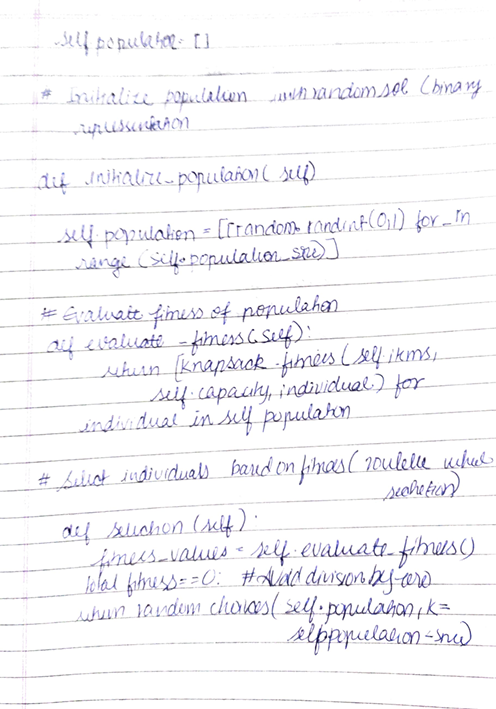 self population = []
# Initialize population with random sol (binary
representation
def initialize_population( self)
self.population = [[random.randint(0,1) for _ in
range (self.population_size)]
# Evaluate fitness of population
def evaluate_fitness(self):
return [knapsack_fitness ( self items,
self.capacity, individual.) for
individual in self population
# Select individuals based on fitness ( roulette wheel
selection)
def selection (self):
fitness_values = self.evaluate fitness()
total fitness == 0: #Avoid division by zero
return random choices( self.population, k=
self.population_size)